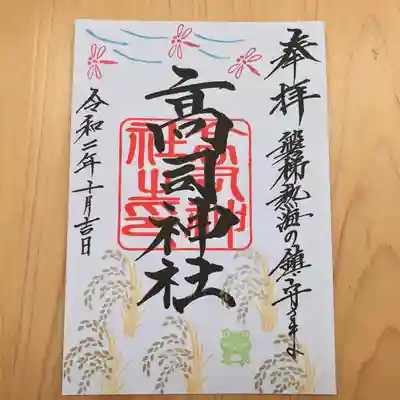 奉拝
磐梯熱海の鎮守さま
高司神社
令和二年十月吉日